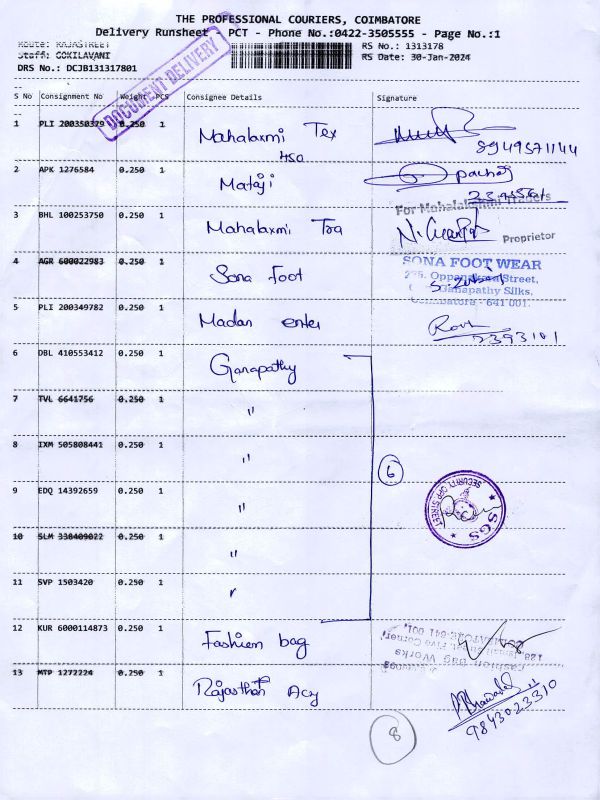 THE PROFESSIONAL COURIERS, COIMBATORE
Delivery Runsheet - PCT - Phone No.:0422-3505555 - Page No.:1
Route: RAJASTREET RS No.: 1313178
Staff: GOKILAVANI RS Date: 30-Jan-2024
DRS No.: DCJB131317801
DOCUMENT DELIVERY
S No Consignment No Weight PCS Consignee Details Signature
1 PLI 200350379 0.250 1 Mahalaxmi Tex
8949571144
450
2 APK 1276584 0.250 1 Mataji
For Mahalakshmi Traders
3 BHL 100253750 0.250 1 Mahalaxmi Tra
Proprietor
4 AGR 600022983 0.250 1 Sona Foot
SONA FOOT WEAR
Street,
Ganapathy Silks,
Coimbatore - 641 001.
5 PLI 200349782 0.250 1 Madan enter
2393101
6 DBL 410553412 0.250 1 Ganapathy
7 TVL 6641756 0.250 1 "
8 IXM 505808441 0.250 1 "
6
9 EDQ 14392659 0.250 1 "
SECURITY OPP STREET
SGS
10 SLM 338409022 0.250 1 "
11 SVP 1503420 0.250 1 "
12 KUR 6000114873 0.250 1 Fashion bag
COIMBATORE-641 001
Five Corner
Fashion Bag Works
13 MTP 1272224 0.250 1 Rajasthan Acy
9843023310
8